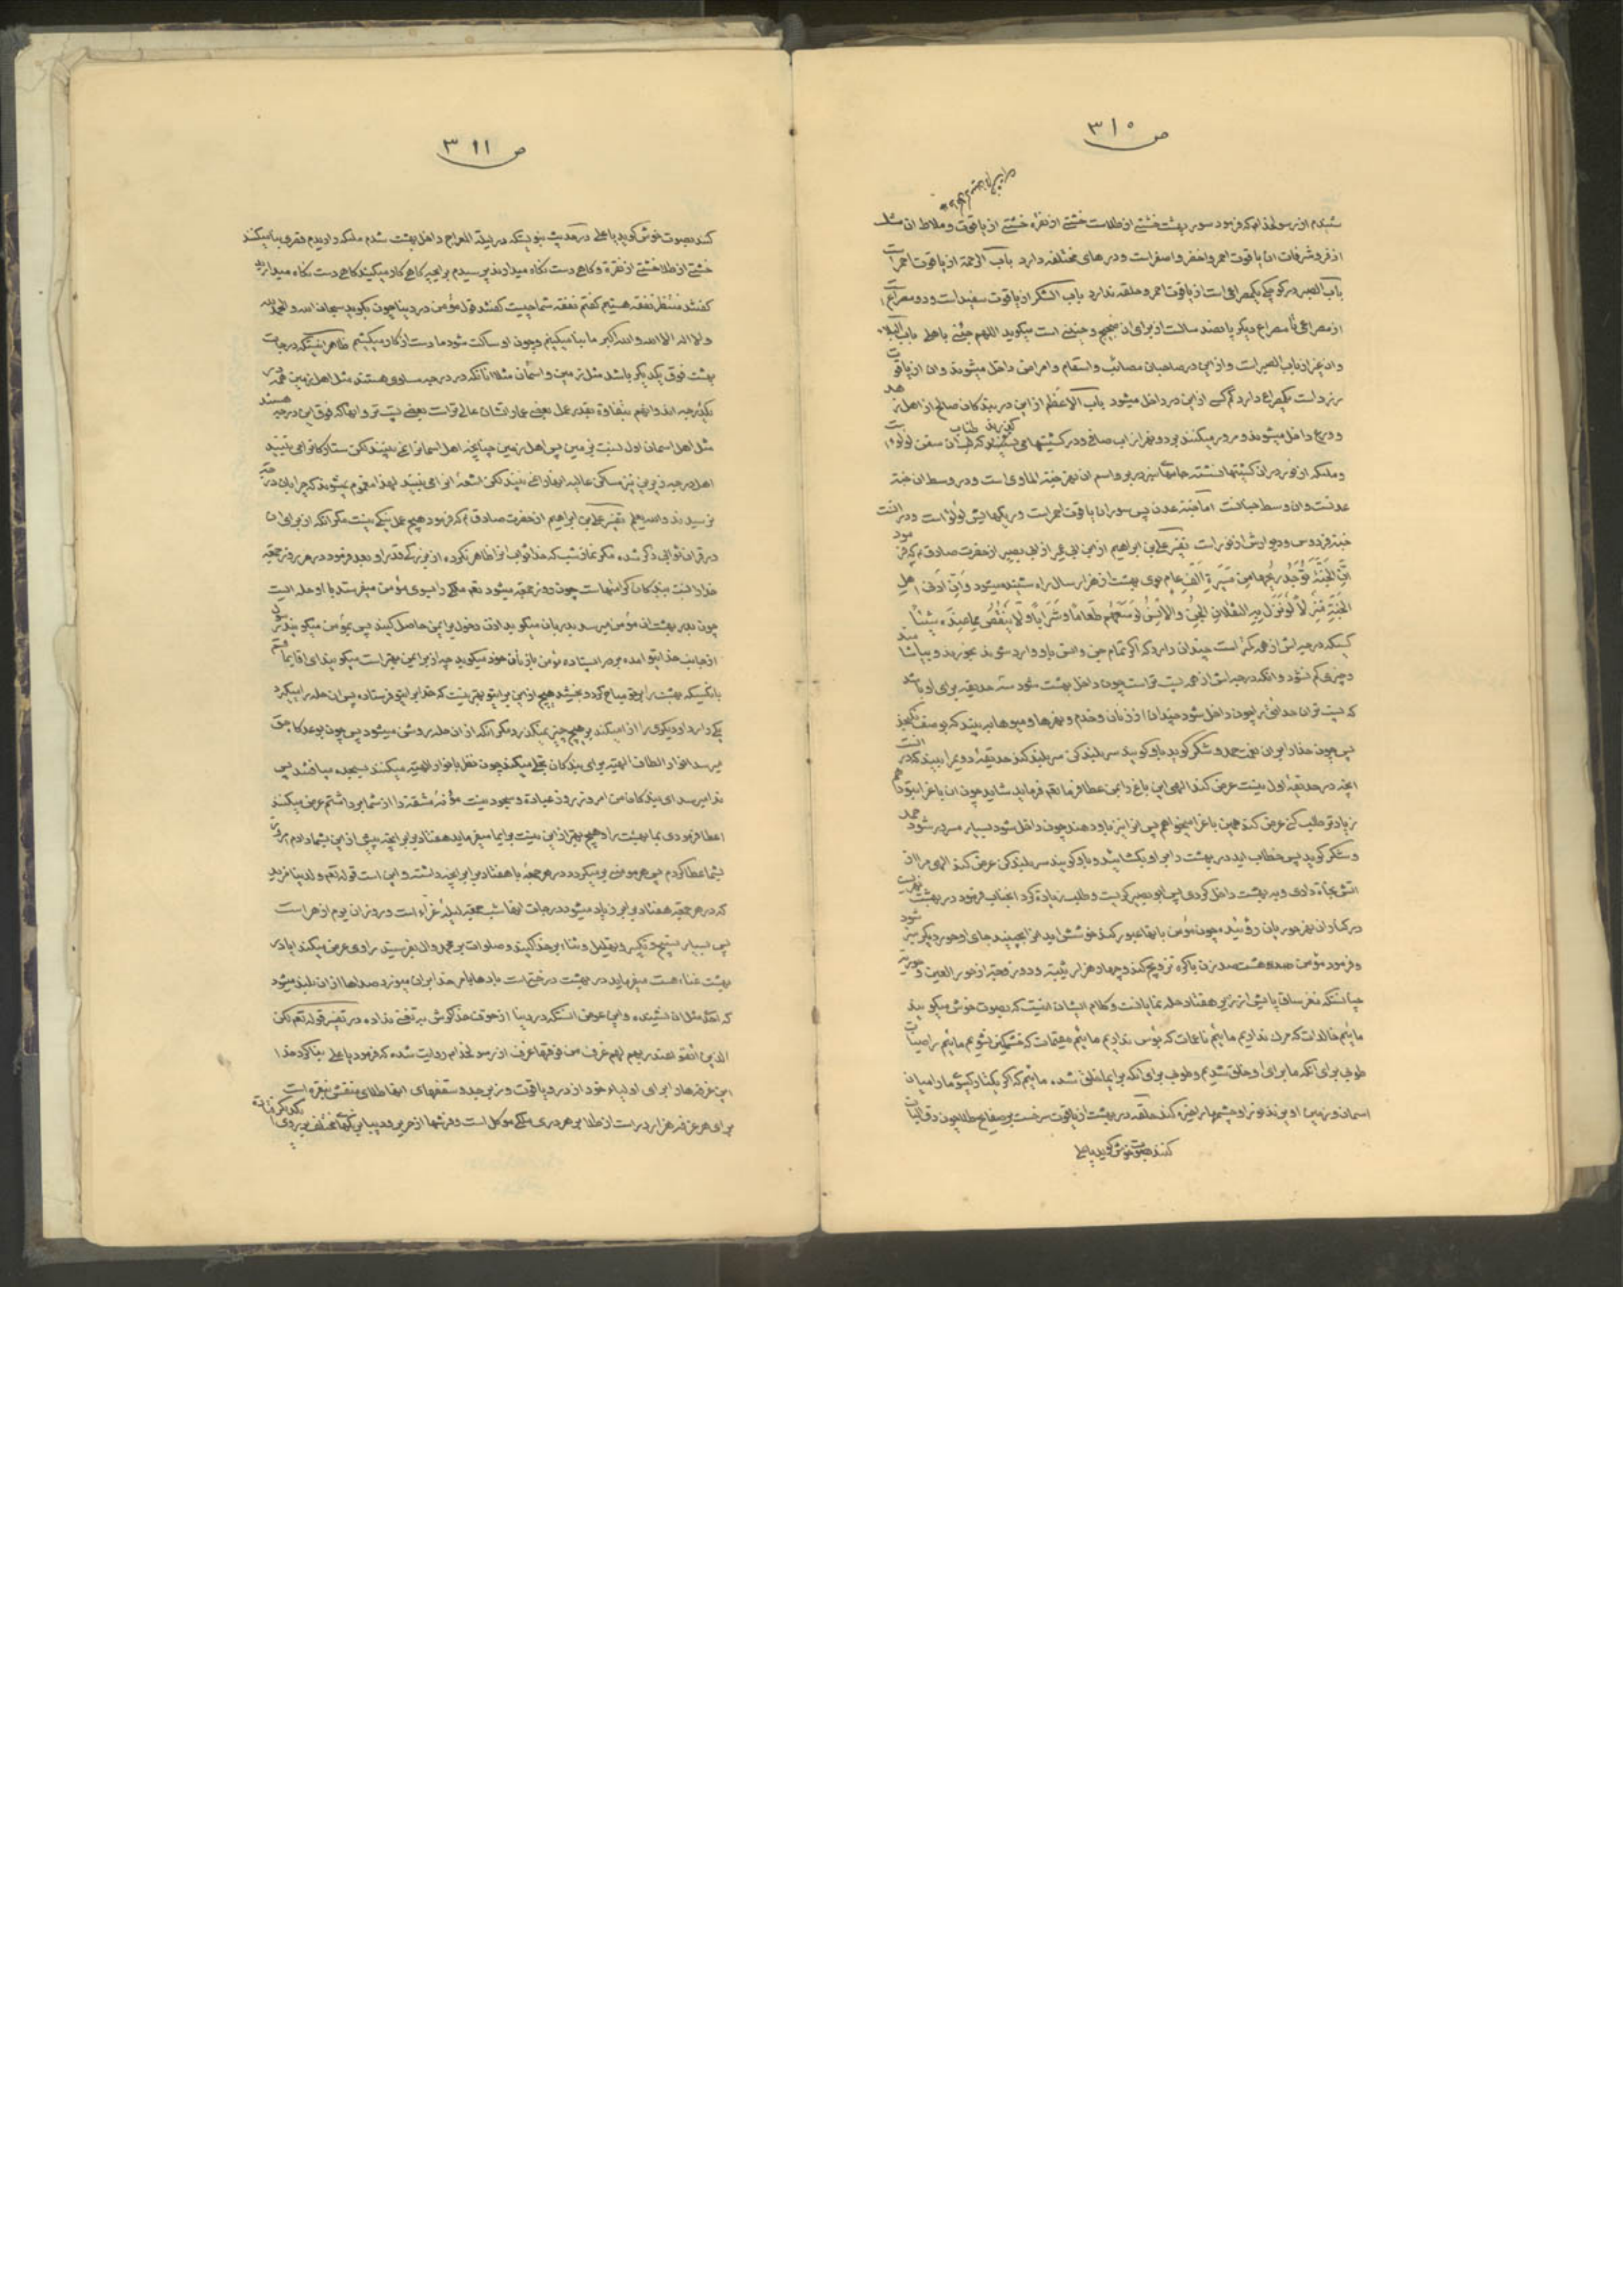 ص ۳۱۰
شنیدم از رسولخدا که فرمود سور بهشت خشتی از طلاست خشتی از نقره خشتی از یاقوت و ملاط ان مشک
باب الرحمة از یاقوت احمر است
باب الصبر در کوچکی یکمصراعی است از یاقوت احمر و حلقه ندارد باب الشکر از یاقوت سفید است و دو مصراع
از مصراعی تا مصراع دیکر پانصد سالست از برای ان ضجیج و حنینی است میکوید اللهم جئنی باهلی باب البلاء
و ان غیر از باب الصبر است و از این در صاحبان مصائب و اسقام و امراض داخل میشوند و ان از یاقوت
زرد است یکمصراع دارد کم کسی از این در داخل میشود باب الاعظم از این در بندکان صالح از اهل زهد
و ورع داخل میشوند
و ملئکه از نور در ان کشتیها نشسته جامهای سبز در بر و اسم ان نهر جنة الماوی است و در وسط ان جنة
عدنست و ان وسط جنانست اما جنة عدن پس سور ان یاقوت احمر است و ریکهایش لؤلؤ است و در انست
جنة فردوس و دیوارش از نور است تفسیر علی بن ابراهیم از ابن ابی عمیر از ابی بصیر از حضرت صادق ع که فرمود
ان الجنة توجد ریحها من مسیرة الف عام بوی بهشت از هزار سال راه شنیده میشود و ان ادنی اهل
الجنة منزلا لو نزل به الثقلان الجن والانس لوسعهم طعاما و شرابا و لا ینقص مما عنده شیئا
کسیکه درجه اش از همه کمتر است چندان دارد که اکر تمام جن و انس باو وارد شوند بخورند و بیاشامند
و چیزی کم نشود و انکه درجه اش از همه پست تر است چون داخل بهشت شود سه حدیقه برای او باشد
که پست تر ان حدائق را چون داخل شود چندان از زنان و خدم و نهرها و میوها به بیند که بوصف نکنجد
پس چون خدا را بر ان نعمت حمد و شکر کوید باو کویند سر بلند کن سر بلند کند حدیقه دویم را ببیند که در انست
انچه در حدیقه اول نیست عرض کند الهی این باغ را بمن عطا فرما نعم فرماید شاید چون ان باغرا بتو دهم
زیادتر طلب کنی عرض کند همین باغرا میخواهم پس انرا نیز باو دهند چون داخل شود بسیار مسرور شود حمد
و شکر کوید پس خطاب اید در بهشت را بر او بکشایند و باو کویند سر بلند کن عرض کند الهی مرا از
اتش نجاة دادی و به بهشت داخل کردی پس ابو بصیر کریست و طلب زیادة کرد انجناب فرمود در بهشت نهریست
در کنار ان نهر حوریان روئیده چون مؤمن بانها عبور کند خوشش اید انرا بچیند جای او حور دیکر سبز شود
و فرمود مؤمن صد هشتصد زن باکره تزویج کند و چهار هزار ثیبه و دو زوجه از حور العین
چنانستکه مغز ساق پایش از زیر هفتاد حله نمایانست و کلام ایشان اینست که بصوت خوش میکویند
مائیم خالدات که مرک نداریم مائیم ناعمات که بؤس نداریم مائیم مقیمات که خشمکین نشویم مائیم راضیات
طوبی برای انکه ما برای او خلق شدیم و طوبی برای انکه برای ما خلق شده مائیم که اکر یکتار کیسوی ما را میان
اسمان و زمین اویزند نور او چشمها را خیره کند حلقه در بهشت از یاقوت سرخست بر صفایح طلا چون دق الباب
کنند بصوت خوش کوید یا علی
ص ۳۱۱
کند بصوت خوش کوید یا علی در حدیث نبویستکه در لیلة المعراج داخل بهشت شدم ملئکه را دیدم قصری بنا میکنند
خشتی از طلا خشتی از نقره و کاهی دست نکاه میدارند پرسیدم برای چه کاهی کار میکنید کاهی دست نکاه میدارید
کفتند منتظر نفقه هستیم کفتم نفقه شما چیست کفتند قول مؤمن در دنیا چون بکوید سبحان الله و الحمد لله
و لا اله الا الله و الله اکبر ما بنا میکنیم و چون او ساکت شود ما دست از کار میکشیم ظاهر اینستکه درجات
بهشت فوق یکدیکر باشد مثل زمین و اسمان مثلا انانکه در درجه مساوی هستند مثل اهل زمین همه در
یکدرجه اند و انهم بتفاوة بقدر عمل بعضی عماراتشان عالی تر است بعضی پست تر و انها که فوق این درجه هستند
مثل اهل اسمان اول نسبت بزمین پس اهل زمین چنانچه اهل اسمانرا نمی بینند لکن ستارکانرا می بینند
اهل درجه زیرین نیز مساکن عالیه انها را نمی بینند لکن اشعه انرا می بینند لهذا مغموم نمیشوند که چرا بان درجه
نرسیدند والله یعلم تفسیر علی بن ابراهیم از حضرت صادق ع که فرمود هیچ عمل نیکی نیست مکر انکه از برای ان
در قران ثوابی ذکر شده مکر نماز شب که خدا ثواب انرا ظاهر نکرده از بزرکی قدر او بعد فرمود در هر روز جمعه
خدا را نسبت ببندکان کرامتهاست چون روز جمعه میشود نعم ملکی را بسوی مؤمن میفرستد با او حله ایست
چون بدر بهشت ان مؤمن میرسد بدربان میکوید اذن دخول برای من حاصل کنید پس بمؤمن میکویند رسولی
از جانب خدا بتو امده بر در ایستاده مؤمن بازنان خود میکوید چه از برای من بهتر است میکویند ای اقای ما قسم
بانکسیکه بهشت را بر تو مباح کرد و بخشید هیچ از این برای تو بهتر نیست که خدا برای تو فرستاده پس ان حله را میکیرد
یکی را ردا و دیکری را ازار میکند بر هیچ چیز نمیکذرد مکر انکه از ان حله روشن میشود پس چون بوعدکاه حق
میرسد انوار الطاف الهیه برای بندکان تجلی میکند چون نظر بانوار الهیه میکنند بسجده میافتند پس
ندا میرسد ای بندکان من امروز روز عبادة و سجود نیست مؤنه مشقة را از شما برداشتم عرض میکنند
اعطا فرمودی بما بهشت را و هیچ بهتر از این نیست برای ما میفرماید هفتاد برابر انچه پیش از این بشما دادم
بشما عطا کردم پس هر مؤمن برمیکردد در هر جمعه با هفتاد برابر انچه داشته و این است قوله تعم ولدینا مزید
که در هر جمعه هفتاد برابر زیاد میشود درجات انها شب جمعه لیله غراء است و روز ان یوم ازهر است
پس بسیار تسبیح و تکبیر و تهلیل و ثناء بر خدا کنید و صلوات بر محمد و ال بفرستید راوی عرض میکند ایا در
بهشت غناء هست میفرماید در بهشت درختی است بادها بامر خدا بر ان میوزد صداها از ان بلند میشود
که احدی مثل ان نشنیده و این عوض انستکه در دنیا از خوف خدا کوش به تغنی نداده در تفسیر قوله تعم لکن
الذین اتقوا ربهم لهم غرف من فوقها غرف از رسولخدا روایت شده که فرمود یا علی بنا کرد خدا
این غرفها را برای اولیاء خود از در و یاقوت و زبرجد و سقفهای انها طلای منقش بنقره است
برای هر غرفه هزار در است از طلا بر هر دری ملکی موکل است و فرشها از حریر و دیبا برنکهای مختلف بر روی